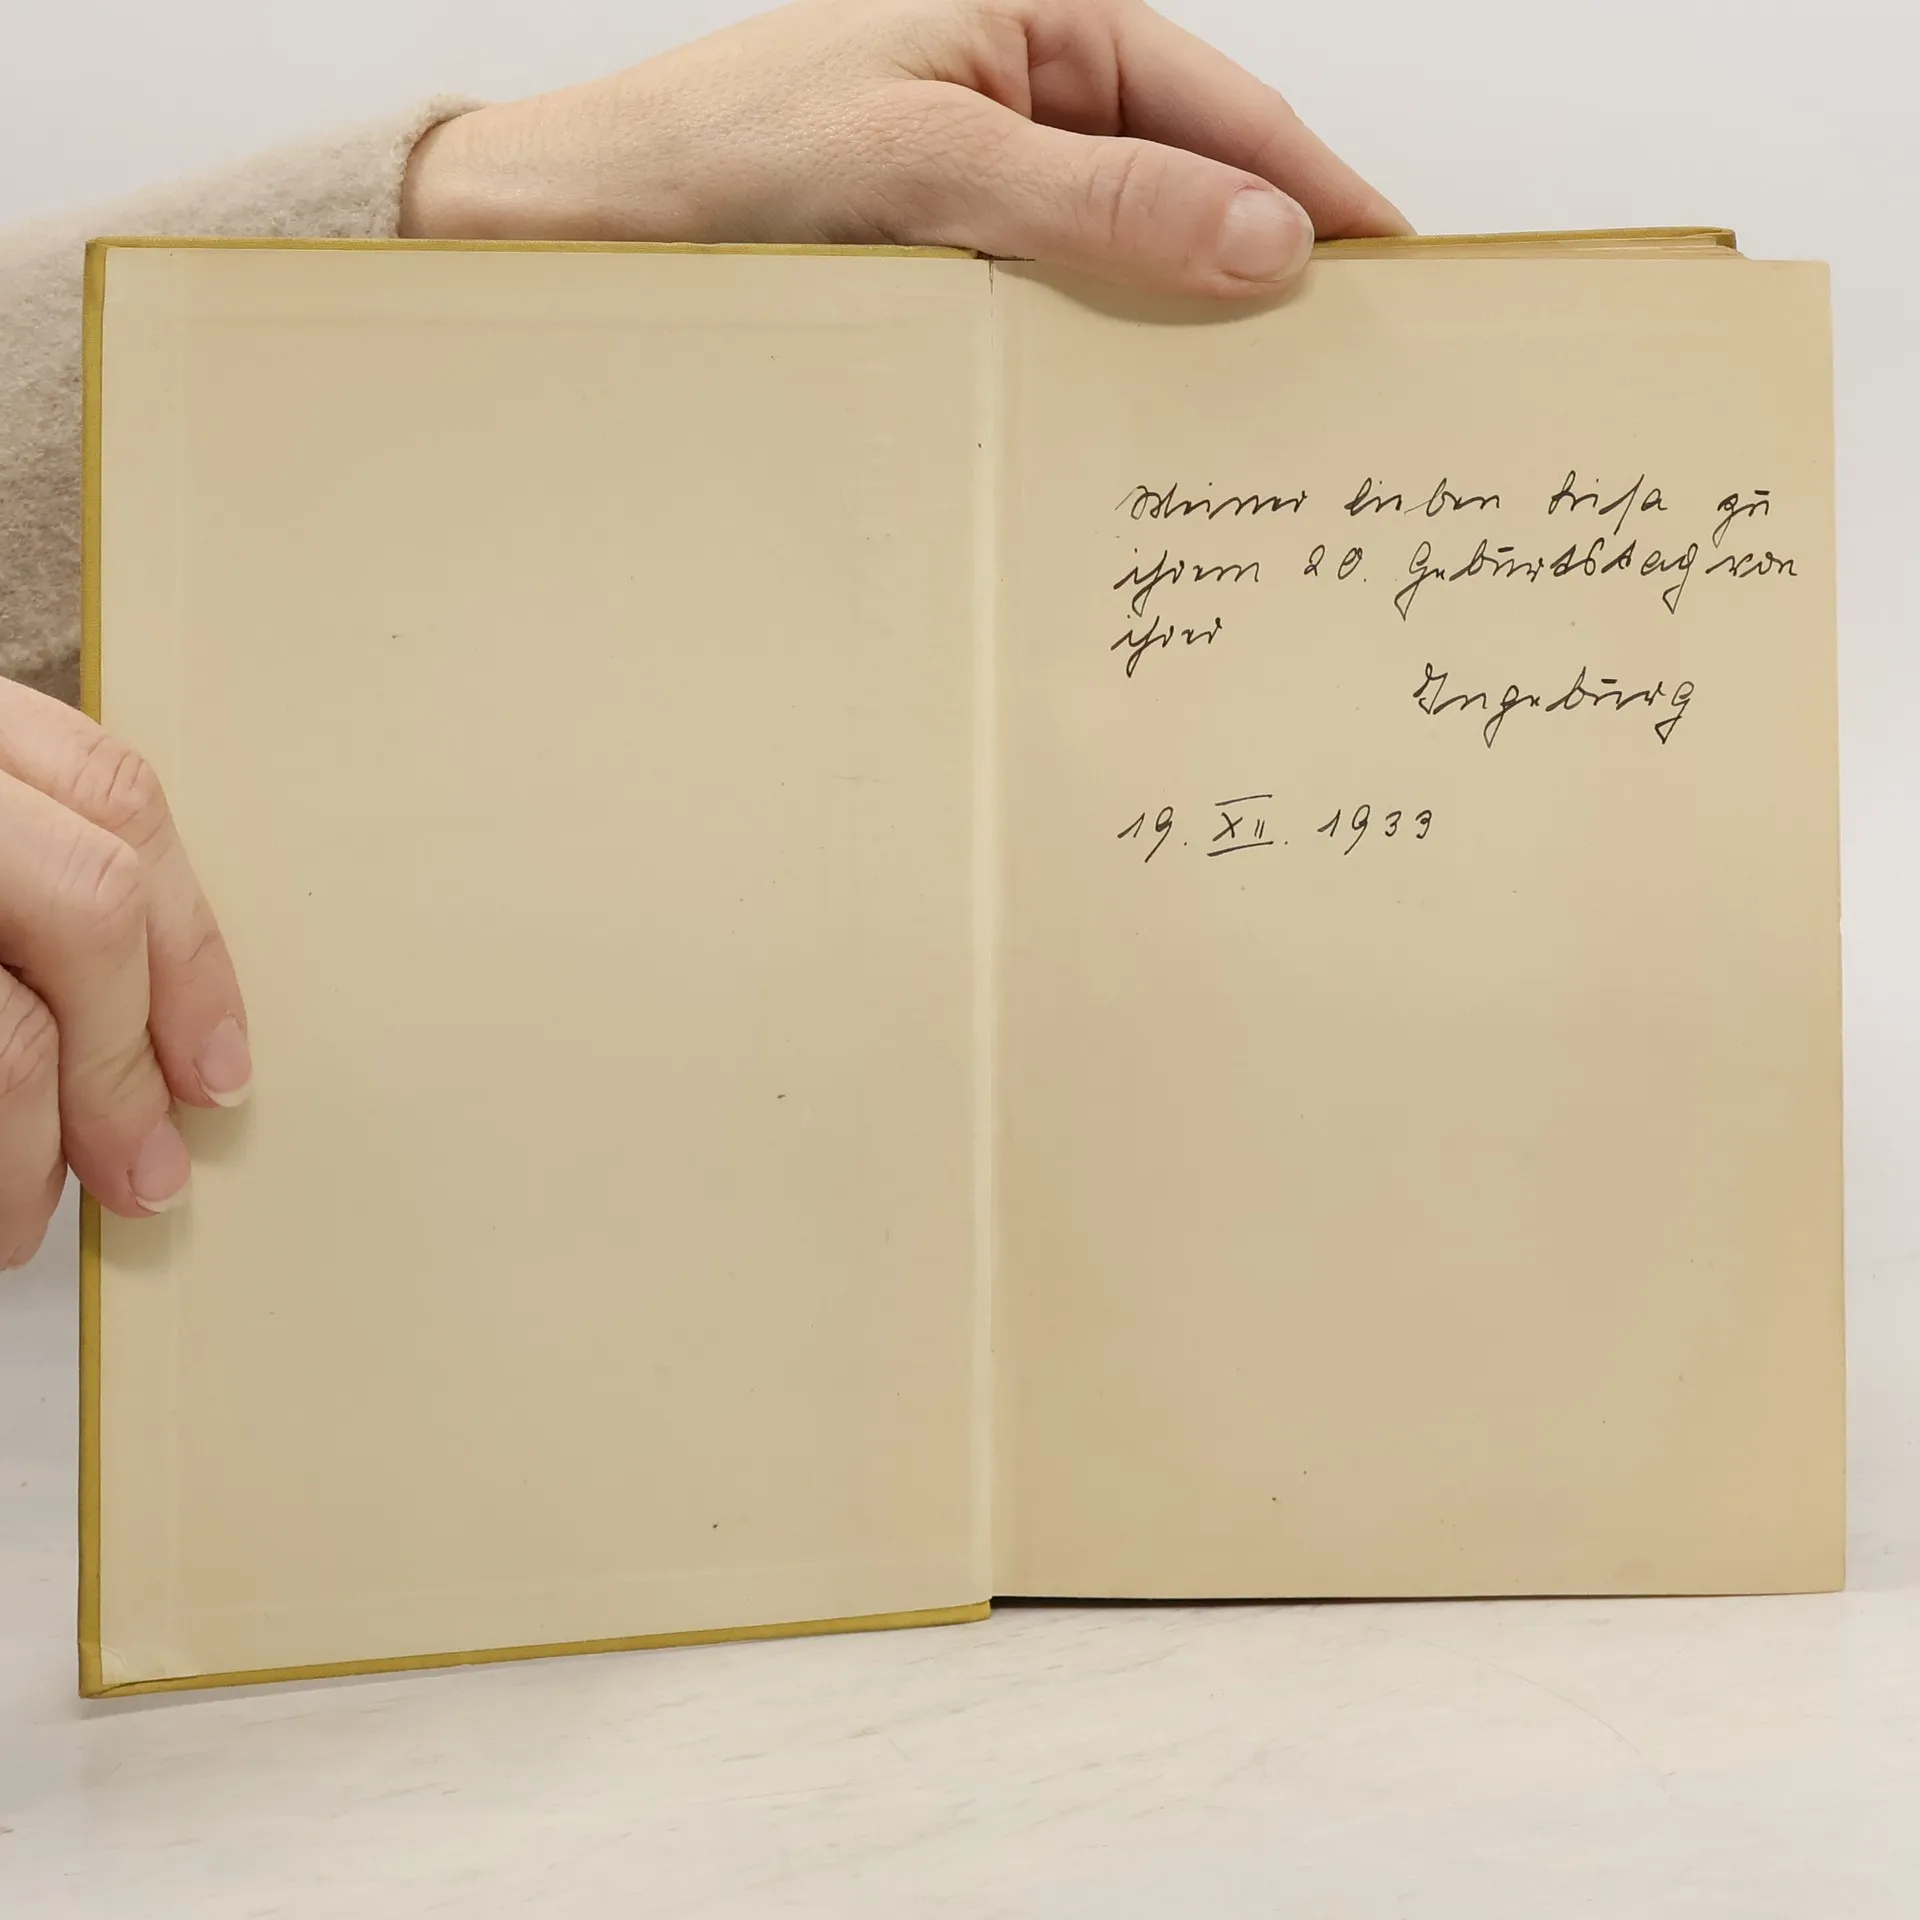 Meiner lieben Luisa zu
ihrem 20. Geburtstag von
ihrer
Ingeburg
19. XII. 1933